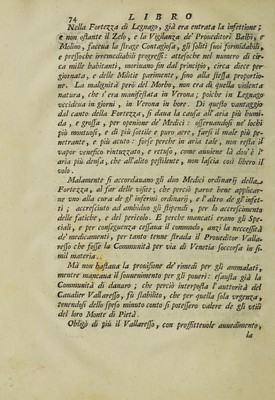 74 LIBRO
Nella Fortezza di Legnago, già era entrata la infettione;
e non ostante il Zelo, e la Vigilanza de' Proueditori Balbi, e
Molino, faceua la strage Contagiosa, gli soliti suoi formidabili,
e pressoche irremediabili progressi: attesoche nel numero di cir-
ca mille habitanti, morirono fin dal principio, circa diece per
giornata, e delle Militie parimente, sino alla stessa proportio-
ne. La malignità però del Morbo, non era di quella violenta
natura, che s'era manifestata in Verona; poiche in Legnago
vccideua in giorni, in Verona in hore. Di questo vantaggio
dal canto della Fortezza, si daua la causa all'aria più humi-
da, e grossa, per openione de' Medici: osseruandosi ne' luoghi
più montuosi, e di più sottile e puro aere, farsi il male più pe-
netrante, e più acuto: forse perche in aria tale, non resta il
vapor venefico rintuzzato, e retuso, come auuiene là dou' è l'
aria più densa, che all'alito pestilente, non lascia così libero il
volo.
Malamente si accordauano gli duo Medici ordinarij della
Fortezza, al far delle visite; che perciò parue bene applicar-
ne vno alla cura de gl'infermi ordinarij, e l'altro de gl'infet-
ti; accresciuto ad ambiduo gli stipendi, per lo accrescimento
delle fatiche, e del pericolo. E perche mancati erano gli Spe-
ciali, e per conseguenza cessaua il commodo, anzi la necessità
de' medicamenti, per tanto tenne strada il Proueditor Valla-
resso che fosse la Communità per via di Venetia soccorsa in si-
mil materia.
Mà non bastaua la prouisone de' rimedi per gli ammalati,
mentre mancaua il souuenimento per gli poueri: esausta già la
Communità di danaro; che perciò interposta l'auttorità del
Caualier Vallaresso, fù stabilito, che per quella sola vrgenza,
tenendosi dello speso minuto conto si potessero valere de gli vtili
del loro Monte di Pietà.
Obligò di più il Vallaresso, con profitteuole auuedimento,
la